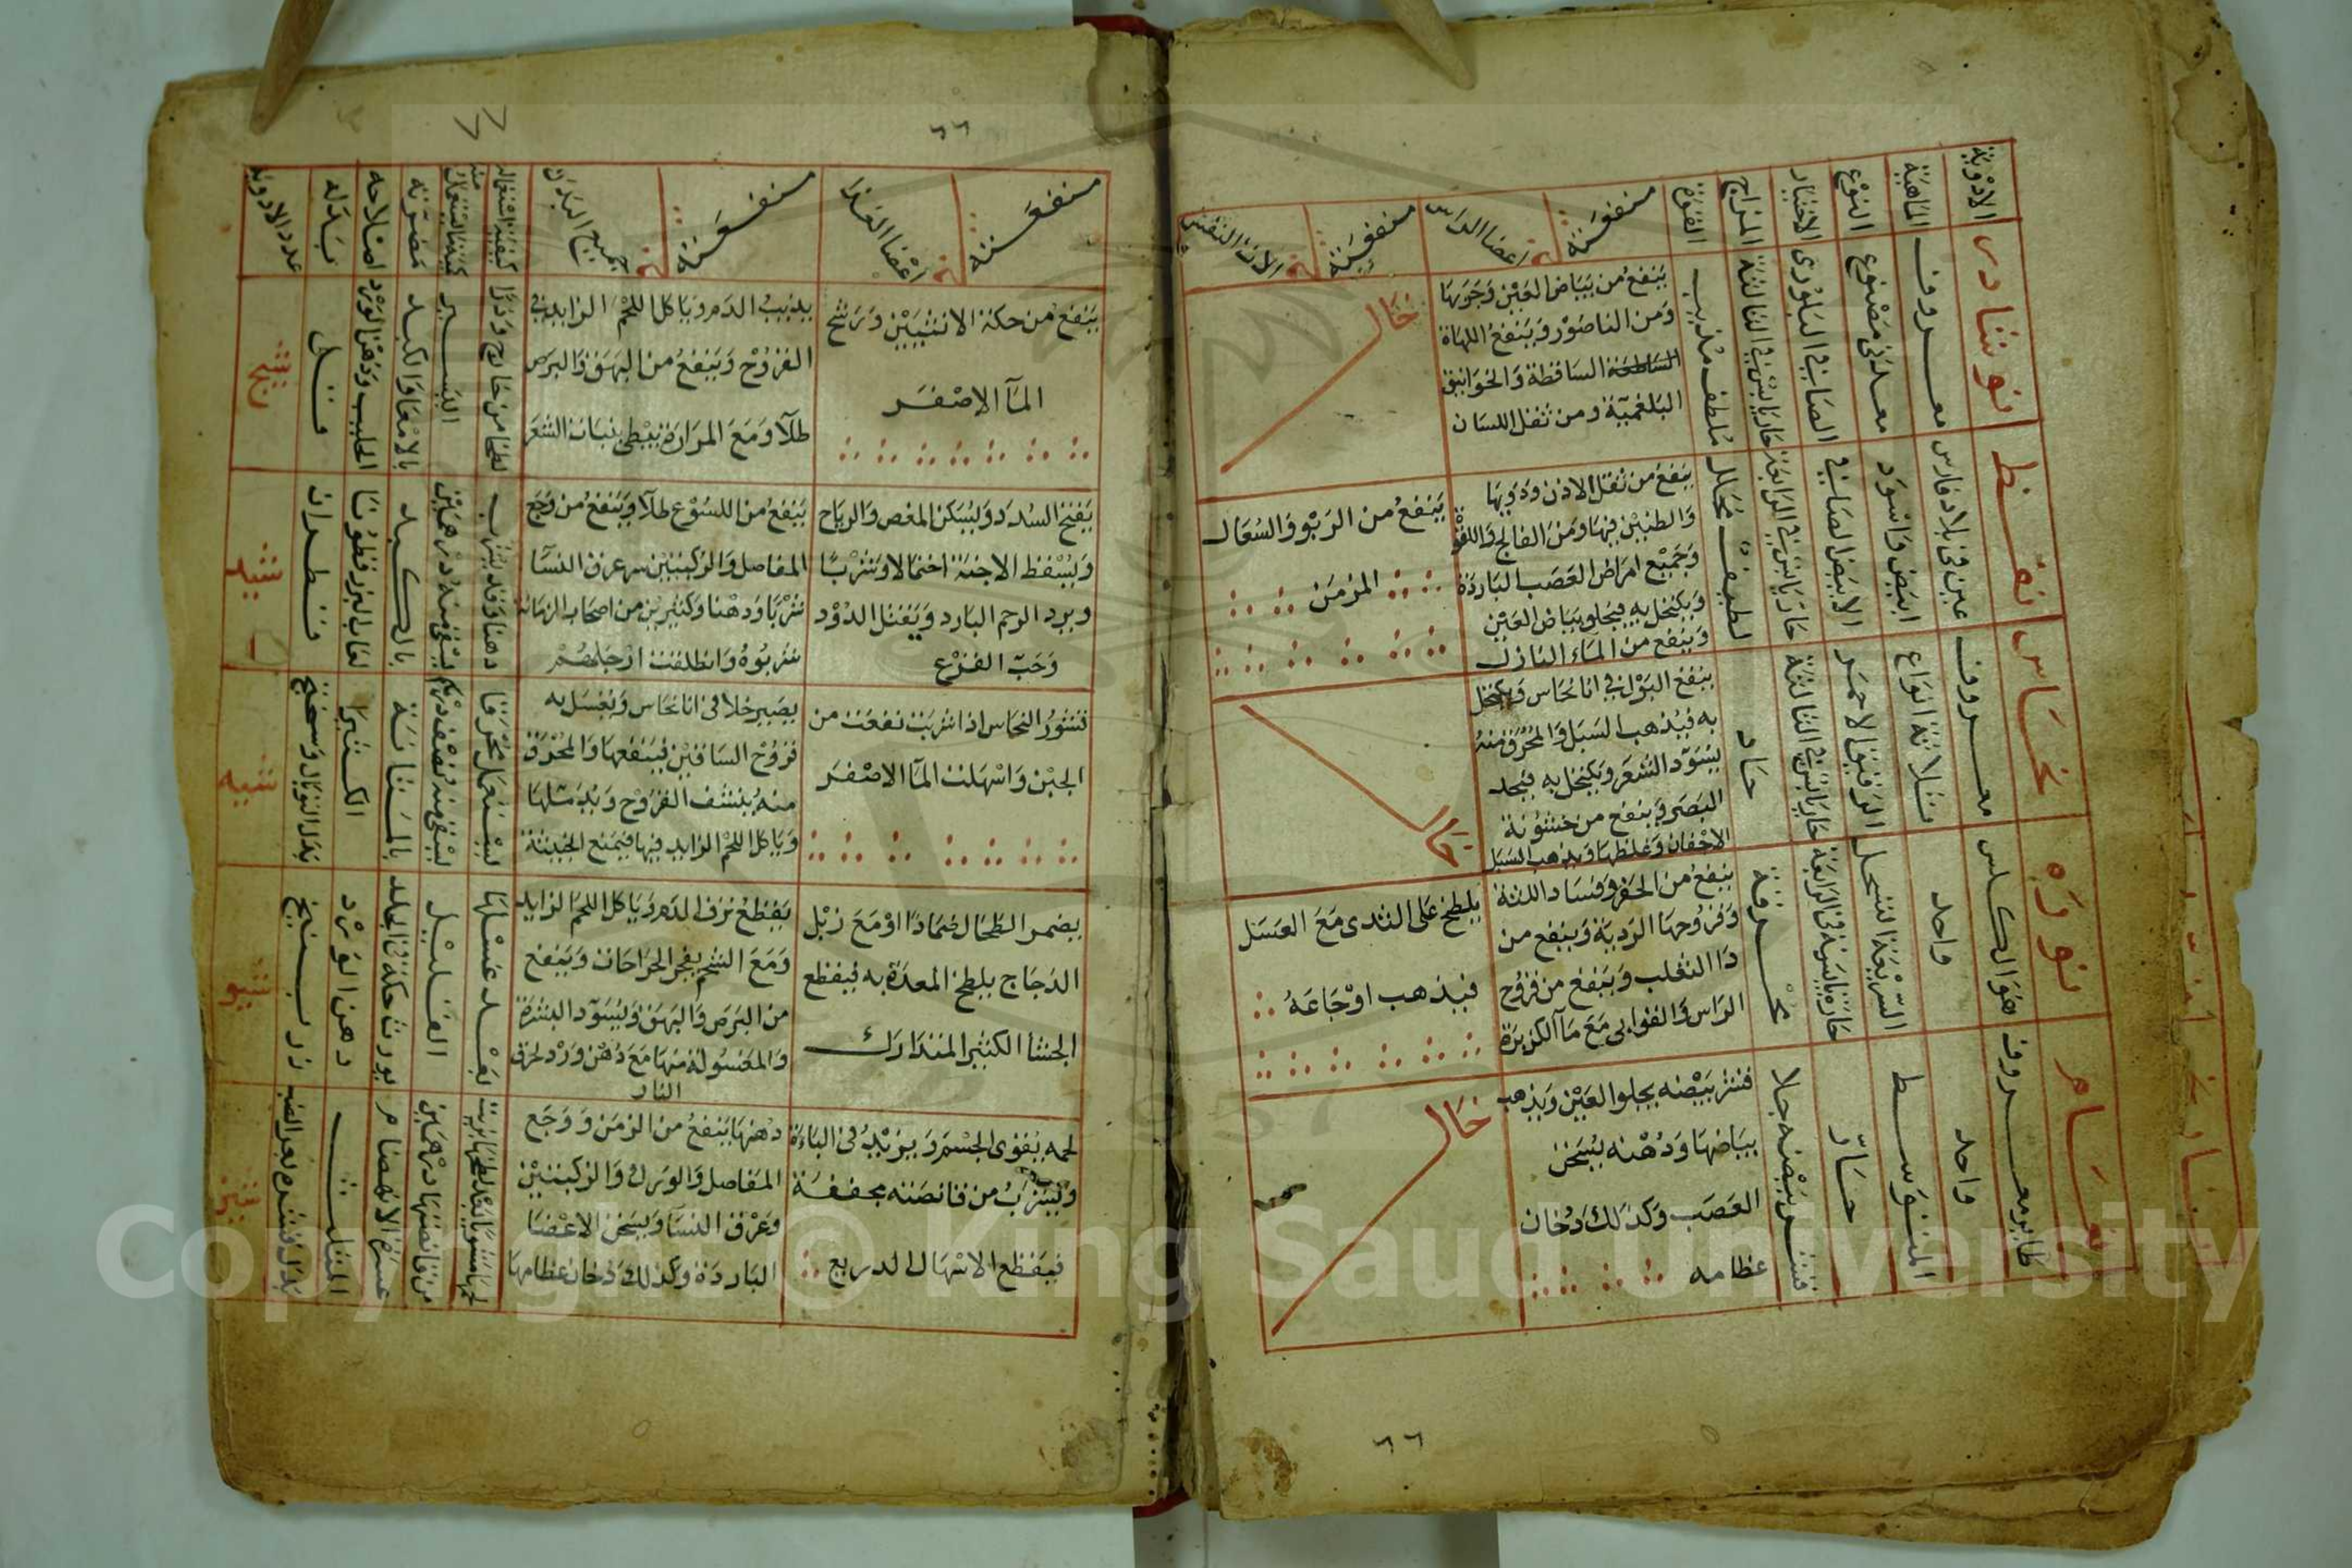 الادوية
الماهية
النوع
الاختيار
المزاج
القوة
منفعته في اعضا الراس
منفعته في الات النفس
نوشادر
معروف
معدني مصنوع
الصافي البلوري
حار يابس في الثالثة
ملطف مذيب
ينفع من بياض العين وجربها
ومن الناصور وينفع اللهاة
الساقطة والخوانيق
البلغمية ومن ثقل اللسان
خال
نفط
عين في بلاد فارس
ابيض واسود
الابيض الصافي
حار يابس في الرابعة
لطيف محلل
ينفع من ثقل الاذن ودويها
والطنين فيها ومن الفالج واللقوة
وجميع امراض العصب الباردة
ويكتحل به فيجلو بياض العين
وينفع من الماء النازل
ينفع من الربو والسعال
المزمن
نحاس
معروف
ثلاثة انواع
الرقيق الاحمر
حار يابس في الثالثة
حاد
ينفع البول في انا نحاس ويكتحل
به فيذهب السبل والمحرق منه
يسود الشعر ويكتحل به فيحد
البصر وينفع من خشونة
الاجفان وغلظها ويذهب السبل
خال
نوره
هو الكلس
واحد
السريعة التحلل
حارة يابسة في الرابعة
محرقة
ينفع من الحفر وفساد اللثة
وقروحها الردية وينفع من
دا الثعلب وينفع من قروح
الراس والقوابي مع مآ الكزبرة
يلطخ على الثدي مع العسل
فيذهب اوجاعه
نعام
طاير معروف
واحد
المتوسط
حار
قشر بيضه جلا
قشر بيضه يجلوا العين ويذهب
بياضها ودهنه يسخن
العصب وكذلك دخان
عظامه
خال
٦٦
٦٦
منفعته في اعضا الغذا
منفعته في جميع البدن
كيفية استعماله
كمية ما يستعمل منه
مضرته
اصلاحه
بدله
عدد الادوية
ينفع من حكة الانثيين وترشح
المآ الاصفر
يذيب الدم وياكل اللحم الزايد في
القروح وينفع من البهق والبرص
طلآ ومع المرارة يبطي بنبات الشعر
لطخا من خارج وذرا
اليسير
بالامعا والكبد
الحليب ودهن الورد
يفتح السدد ويسكن المغص والرياح
ويسقط الاجنة احتمالا وشربا
وبرد الرحم البارد ويقتل الدود
وحب القرع
ينفع من اللسوع طلآ وينفع من وجع
المفاصل والركبتين وعرق النسآ
شربا ودهنا وكثيرين من اصحاب الزمانة
شربوه وانطلقت ارجلهم
دهنا وقد يشرب
يسقى منه درهمين
بالكبد
لعاب البزرقطونا
قطران
قشور النحاس اذا شربت نفعت من
الجبن واسهلت المآ الاصفر
يصير خلا في انا نحاس ويغسل به
قروح الساقين فينفعها والمحرق
منه ينشف القروح ويدملها
وياكل اللحم الزايد فيها فيمنع الخبيثة
يستعمل محرقا
يسقى منه نصف درهم
بالمثانة
الكثيرا
يضمر الطحال ضمادا او مع زبل
الدجاج يلطخ المعدة به فيقطع
الجشا الكثير المتدارك
يقطع نزف الدم وياكل اللحم الزايد
ومع الشحم يفجر الجراحات وينفع
من البرص والبهق ويسود البشرة
والمغسولة منها مع دهن ورد لحرق
النار
بعد غسلها
القليل
يورث حكة في الجلد
دهن الورد
زرنيخ
لحمه يقوي الجسم ويزيد في الباءة
ويشرب من قانصته مجففة
فيقطع الاسهال الدريع
دهنها ينفع من الزمن ووجع
المفاصل والورك والركبتين
وعرق النسآ ويسخن الاعضا
الباردة وكذلك دخان عظامها
من قانصتها درهمين
عسر الانهضام
المثلث
Copyright © King Saud University